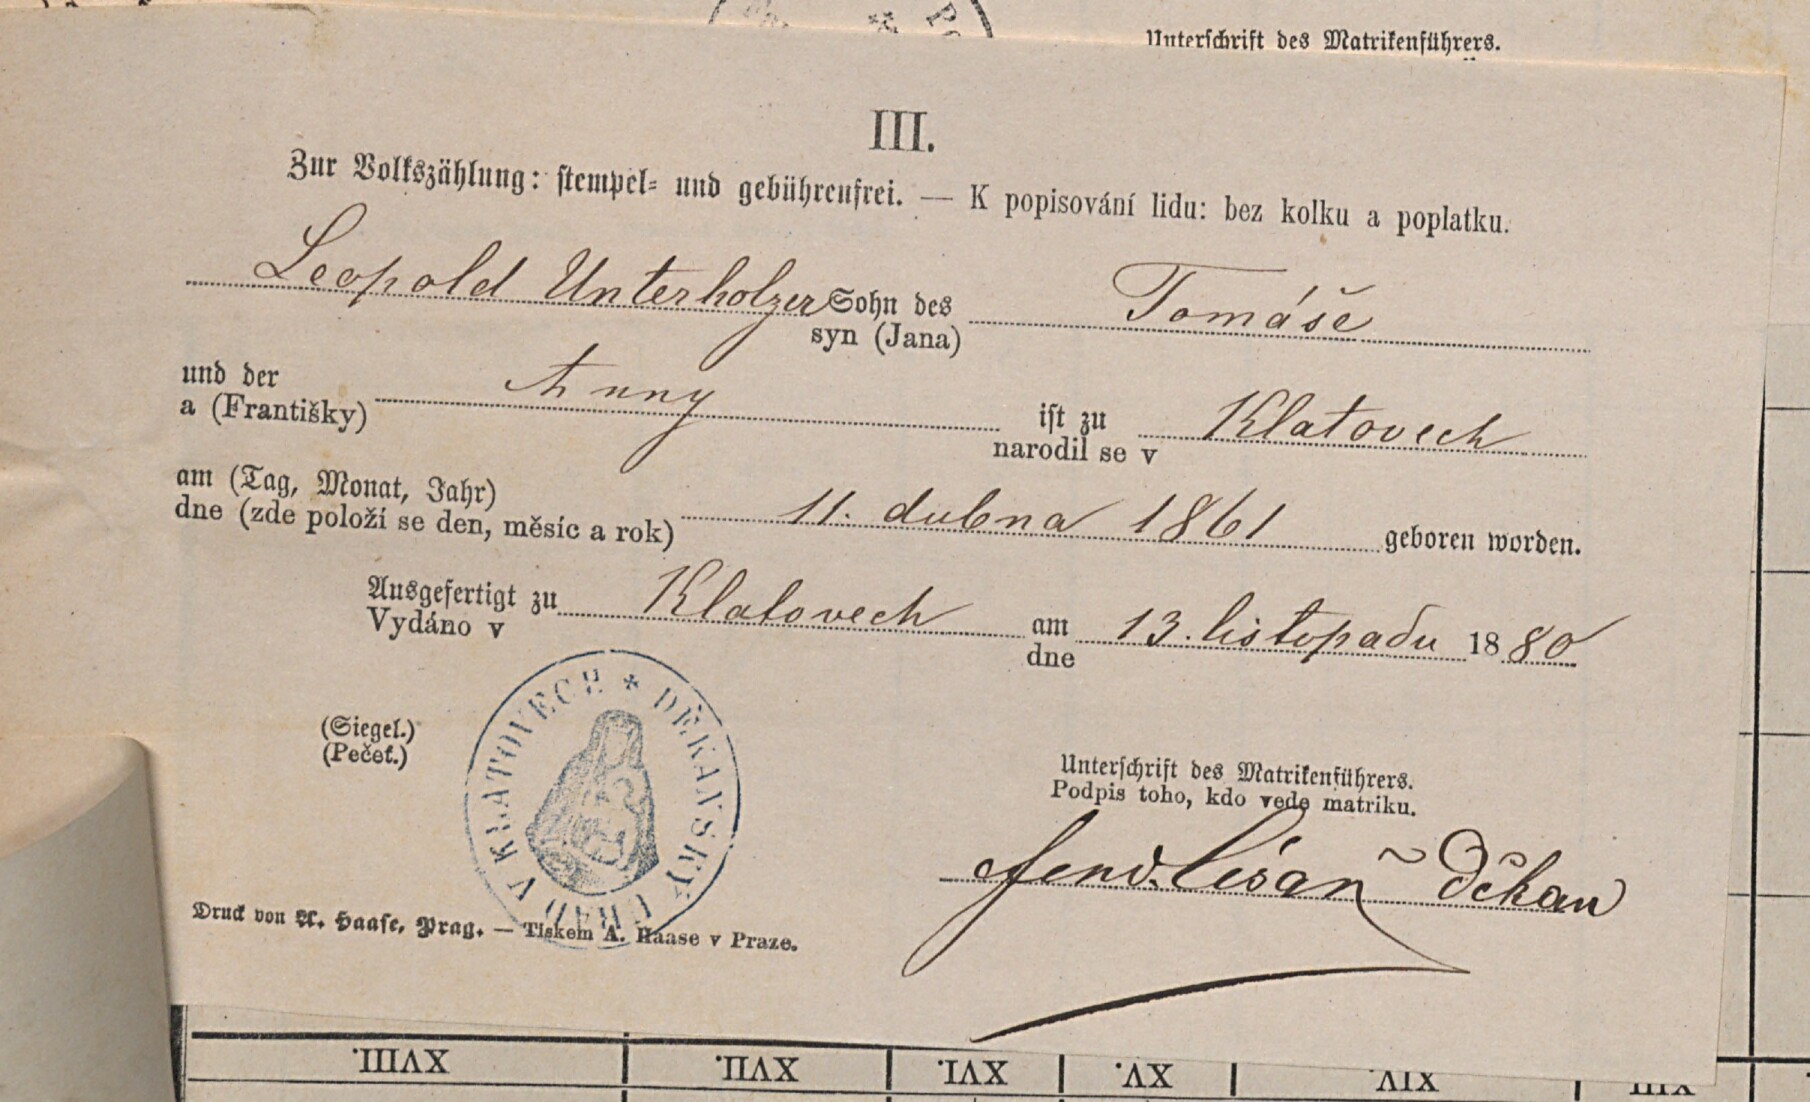 Unterschrift des Matrikenführers.
III.
Zur Volkszählung: stempel- und gebührenfrei. — K popisování lidu: bez kolku a poplatku.
Leopold Unterholzer Sohn des Tomáše
syn (Jana)
und der
a (Františky) Anny ist zu Klatovech
narodil se v
am (Tag, Monat, Jahr)
dne (zde položí se den, měsíc a rok) 11. dubna 1861 geboren worden.
Ausgefertigt zu Klatovech am 13. listopadu 1880
Vydáno v dne
(Siegel.)
(Pečeť.)
DĚKANSKÝ ÚŘAD V KLATOVECH *
Unterschrift des Matrikenführers.
Podpis toho, kdo vede matriku.
děkan
Druck von A. Haase, Prag. — Tiskem A. Haase v Praze.
XVIII. XVII. XVI. XV. XIV. XIII